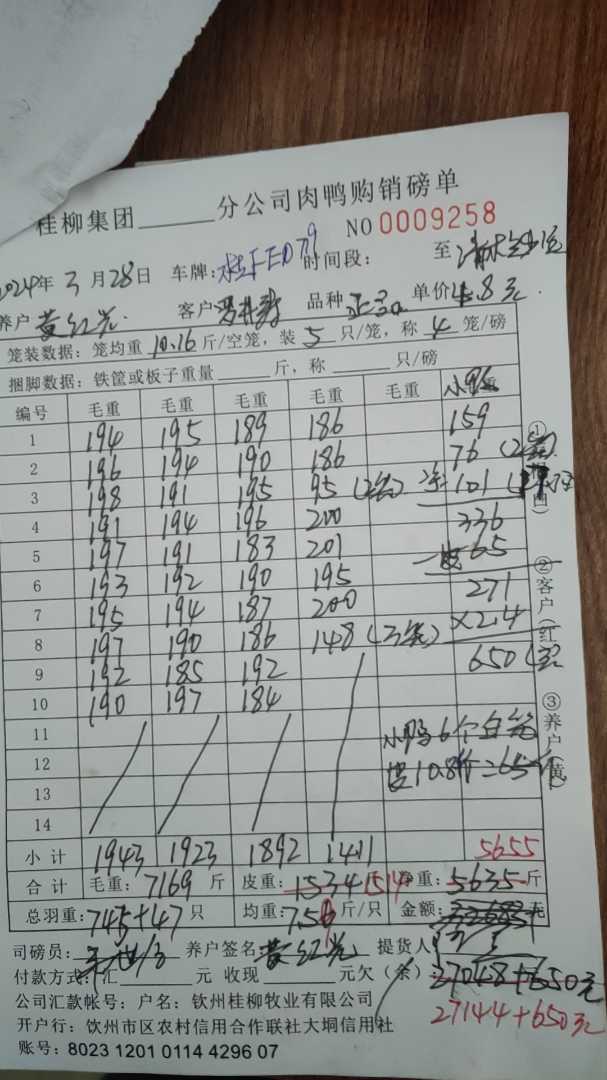 桂柳集团______分公司肉鸭购销磅单
NO 0009258
2024年3月28日 车牌: 时间段: 至
养户 黄红光 客户 品种 单价 4.8元
笼装数据：笼均重 10.16 斤/空笼，装 5 只/笼，称 4 笼/磅
捆脚数据：铁筐或板子重量______斤，称______只/磅
编号 毛重 毛重 毛重 毛重 毛重 小鸭 重
1 194 195 189 186 159
2 196 194 190 186 76 (2笼)
3 198 191 195 95 (2笼) 净 101
4 191 194 196 200 336
5 197 191 183 201 -皮65
6 193 192 190 195 271
7 195 194 187 200 ×2.4
8 197 190 186 148 (3笼) 650
9 192 185 192
10 190 197 184
11 小鸭6个白笼
12 皮10.8斤=65斤
13
14
小计 1943 1923 1892 1411 5655
合计 毛重: 7169 斤 皮重: 1534 1514 净重: 5635 斤
总羽重: 745+47 只 均重: 7.56 斤/只 金额: 元
司磅员: 养户签名 黄红光 提货人
付款方式: 汇______元 收现______元欠（余）: 27048+650元
公司汇款帐号：户名：钦州桂柳牧业有限公司
27144+650元
开户行：钦州市区农村信用合作联社大垌信用社
账号：8023 1201 0114 4296 07
①
②客户(红)
③养户(黄)